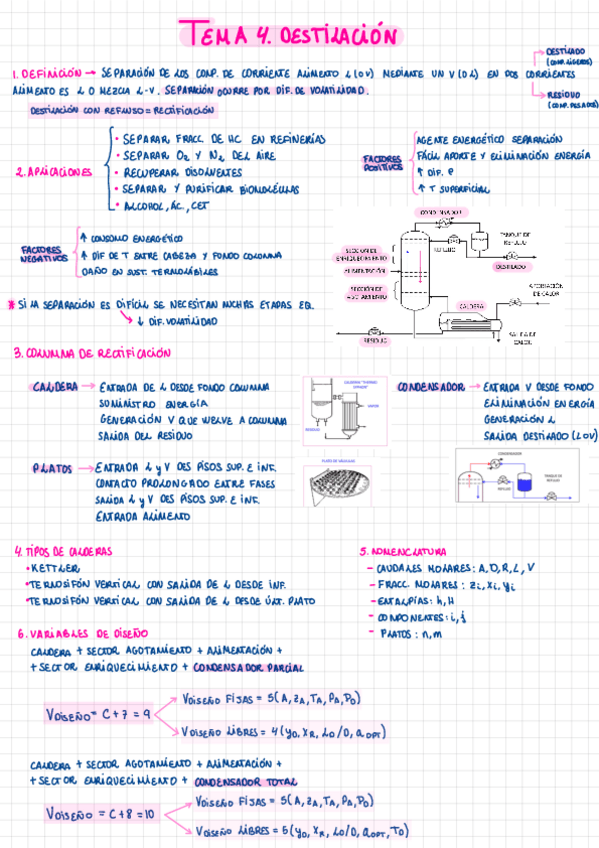 TEMA 4. DESTILACIÓN
1. DEFINICIÓN → SEPARACIÓN DE LOS COMP. DE CORRIENTE ALIMENTO L (O V) MEDIANTE UN V (O L) EN DOS CORRIENTES
→ DESTILADO
(COMP. LIGEROS)
→ RESIDUO
(COMP. PESADOS)
ALIMENTO ES L O MEZCLA L-V. SEPARACIÓN OCURRE POR DIF. DE VOLATILIDAD.
DESTILACIÓN CON REFLUJO = RECTIFICACIÓN
2. APLICACIONES
• SEPARAR FRACC. DE HC EN REFINERÍAS
• SEPARAR O2 Y N2 DEL AIRE
• RECUPERAR DISOLVENTES
• SEPARAR Y PURIFICAR BIOMOLÉCULAS
• ALCOHOL, ÁC., CET
FACTORES POSITIVOS
AGENTE ENERGÉTICO SEPARACIÓN
FÁCIL APORTE Y ELIMINACIÓN ENERGÍA
↑ DIF. P
↑ T SUPERFICIAL
FACTORES NEGATIVOS
↑ CONSUMO ENERGÉTICO
↑ DIF DE T ENTRE CABEZA Y FONDO COLUMNA
DAÑO EN SUST. TERMOLÁBILES
CONDENSADOR
TANQUE DE REFLUJO
REFLUJO
DESTILADO
SECCIÓN DE ENRIQUECIMIENTO
ALIMENTACIÓN
SECCIÓN DE AGOTAMIENTO
CALDERA
APORTACIÓN DE CALOR
SALIDA DE CALOR
RESIDUO
* SI LA SEPARACIÓN ES DIFÍCIL SE NECESITAN MUCHAS ETAPAS EQ.
↓ DIF. VOLATILIDAD
3. COLUMNA DE RECTIFICACIÓN
CALDERA → ENTRADA DE L DESDE FONDO COLUMNA
SUMINISTRO ENERGÍA
GENERACIÓN V QUE VUELVE A COLUMNA
SALIDA DEL RESIDUO
CALDERA "THERMO SIPHON"
VAPOR
RESIDUO
CONDENSADOR → ENTRADA V DESDE FONDO
ELIMINACIÓN ENERGÍA
GENERACIÓN L
SALIDA DESTILADO (L O V)
PLATOS → ENTRADA L y V DES PISOS SUP. E INF.
CONTACTO PROLONGADO ENTRE FASES
SALIDA L y V DES PISOS SUP. E INF.
ENTRADA ALIMENTO
PLATO DE VÁLVULAS
CONDENSADOR
TANQUE DE REFLUJO
REFLUJO
4. TIPOS DE CALDERAS
• KETTLER
• TERMOSIFÓN VERTICAL CON SALIDA DE L DESDE INF.
• TERMOSIFÓN VERTICAL CON SALIDA DE L DESDE ÚLT. PLATO
5. NOMENCLATURA
- CAUDALES MOLARES: A, D, R, L, V
- FRACC. MOLARES: zi, xi, yi
- ENTALPÍAS: h, H
- COMPONENTES: i, j
- PLATOS: n, m
6. VARIABLES DE DISEÑO
CALDERA + SECTOR AGOTAMIENTO + ALIMENTACIÓN +
+ SECTOR ENRIQUECIMIENTO + CONDENSADOR PARCIAL
VDISEÑO = C + 7 = 9
VDISEÑO FIJAS = 5 (A, ZA, TA, PA, PD)
VDISEÑO LIBRES = 4 (yD, XR, LO/D, aOPT)
CALDERA + SECTOR AGOTAMIENTO + ALIMENTACIÓN +
+ SECTOR ENRIQUECIMIENTO + CONDENSADOR TOTAL
VDISEÑO = C + 8 = 10
VDISEÑO FIJAS = 5 (A, ZA, TA, PA, PD)
VDISEÑO LIBRES = 5 (yD, XR, LO/D, aOPT, TD)